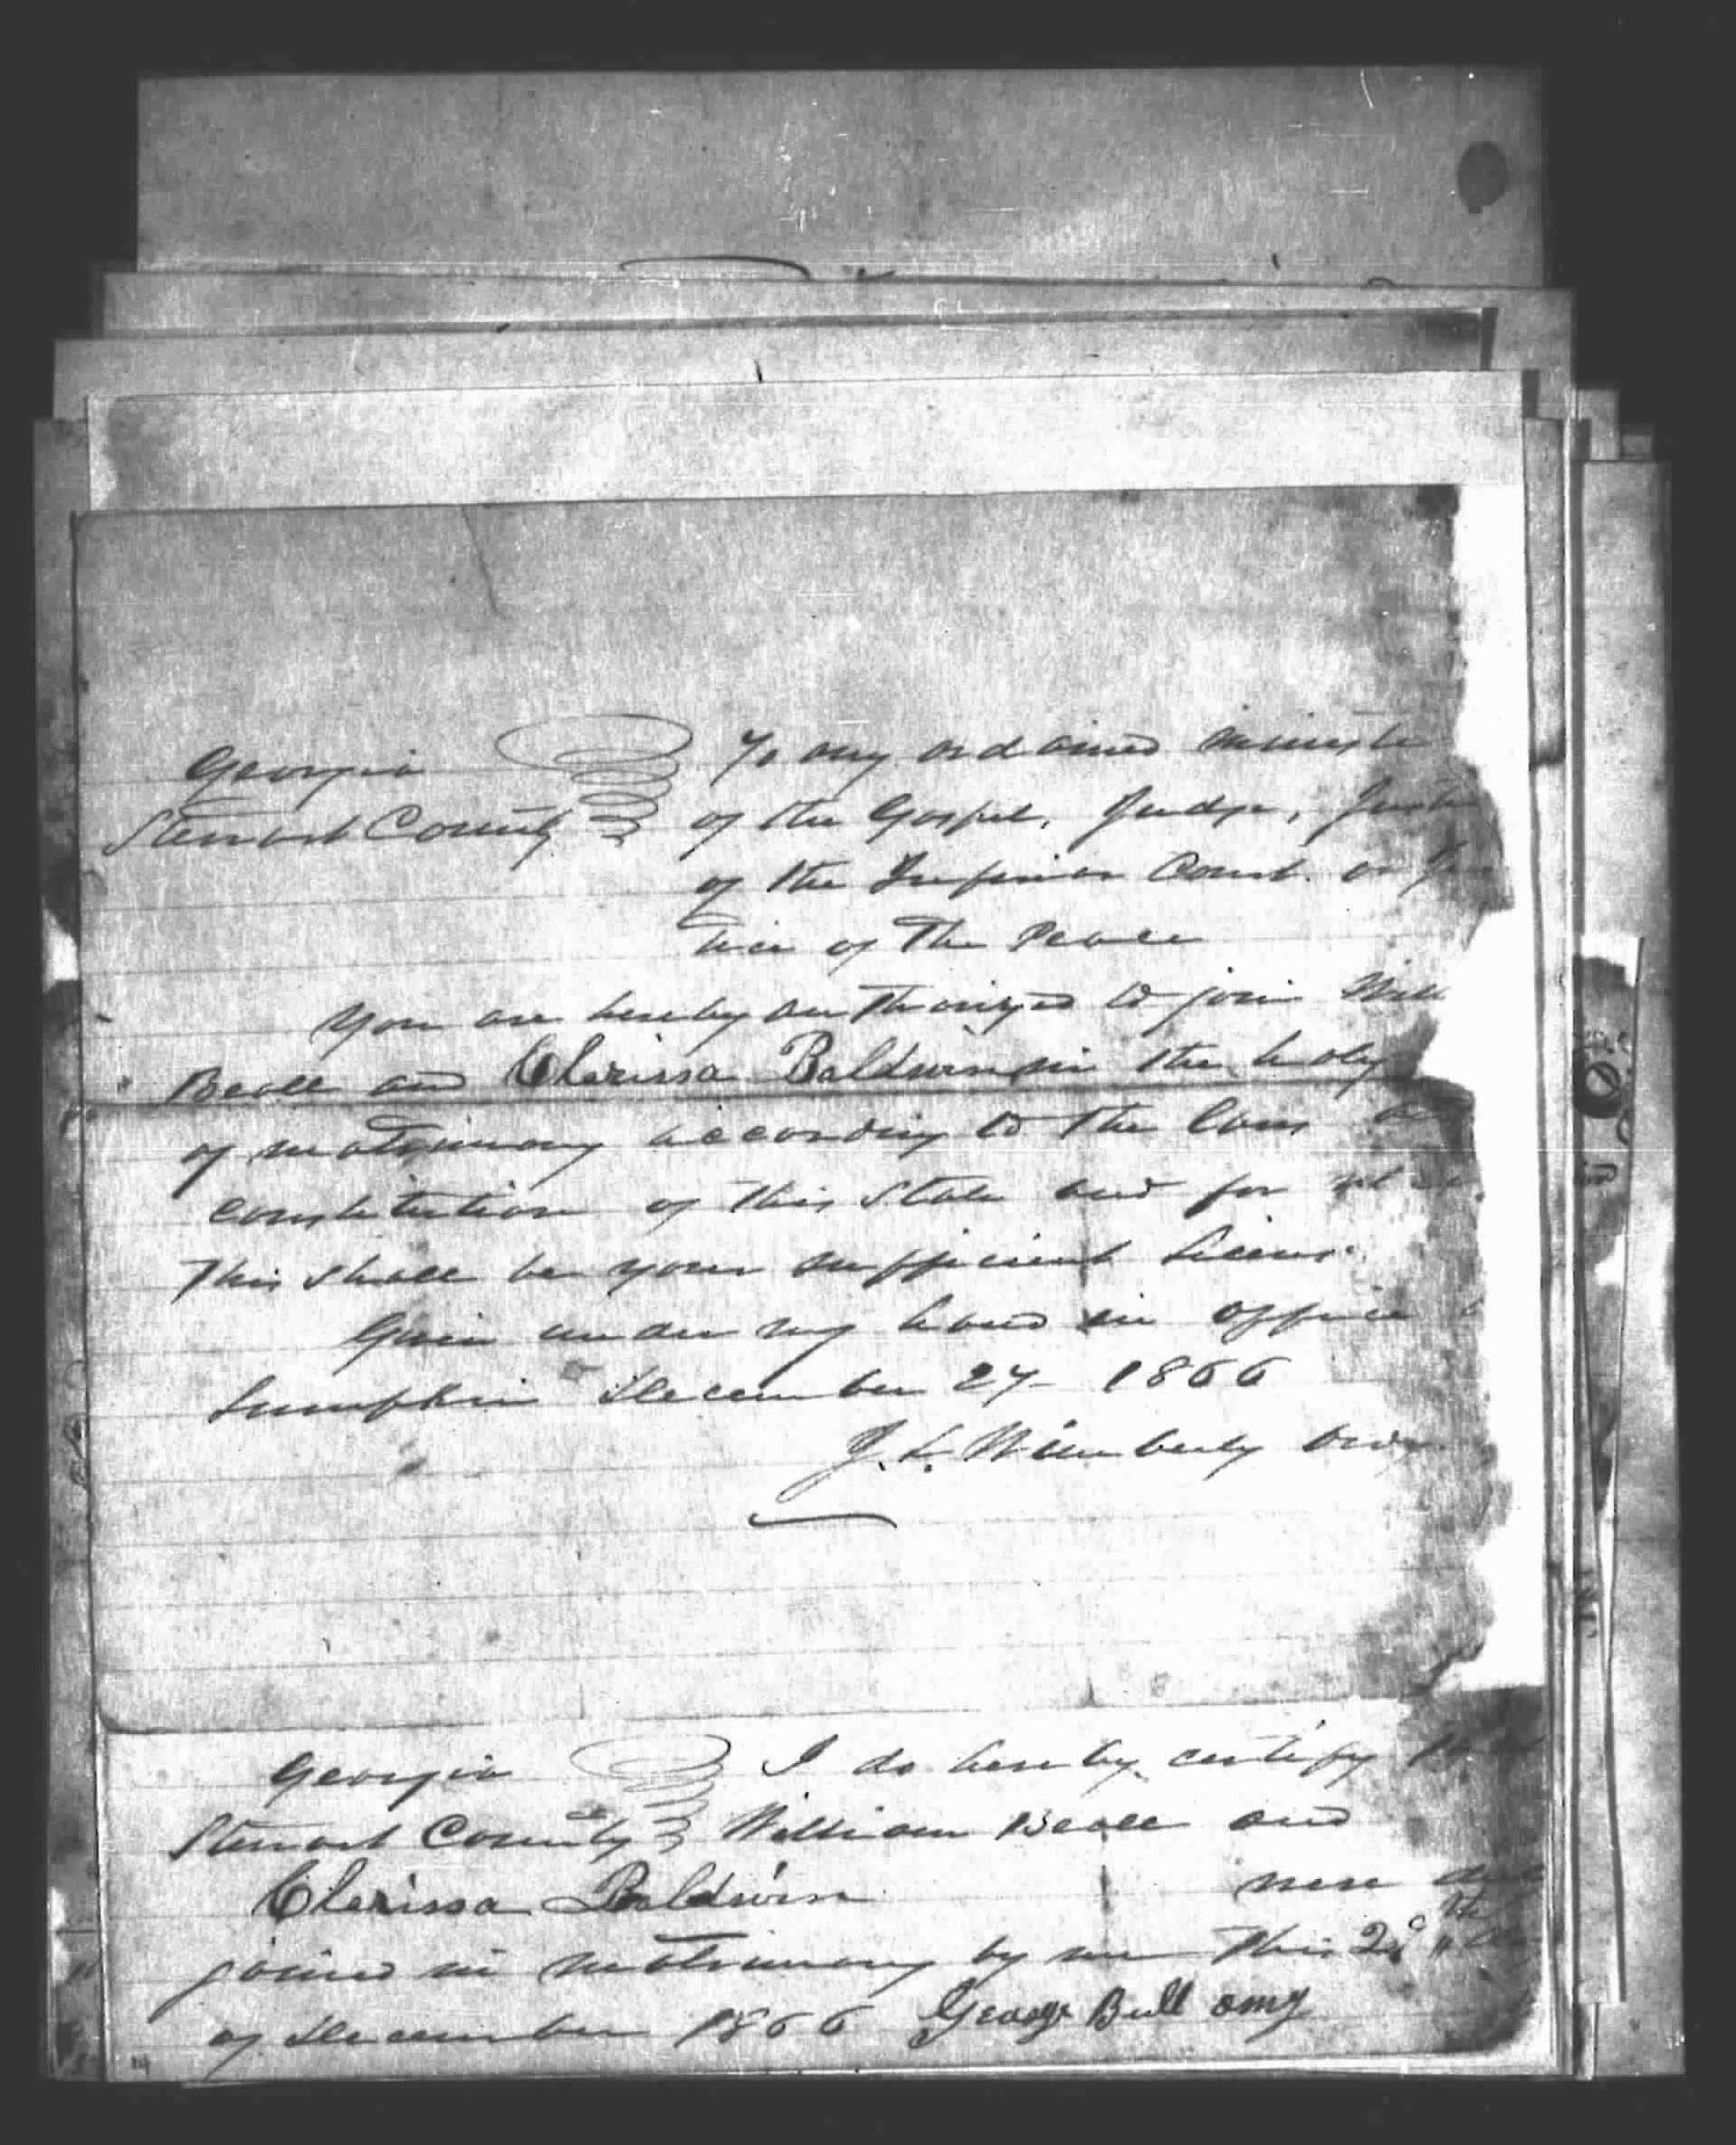 Georgia To any ordained minister
Stewart County of the Gospel, Judge, Just
of the Inferior Court. or Jus
tice of The Peace
You are hereby authorized to join Will
Beall and Clerissa Baldwin in the holy
of matrimony according to the laws
constitution of this State and for
This shall be your sufficient License
Given under my hand in office
Lumpkin December 27 1866
J. L. Wimberly Ordy
Georgia I do hereby certify that
Stewart County William Beall and
Clerissa Baldwin were
joined in matrimony by me This
of December 1866 George Bull omg